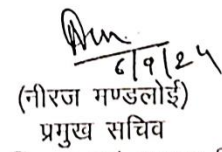 6/9/24
(नीरज मण्डलोई)
प्रमुख सचिव